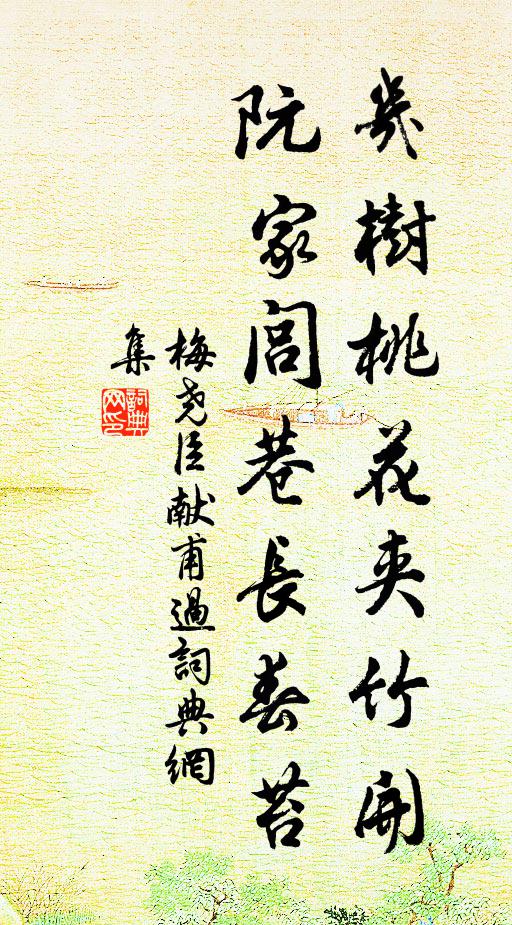 幾樹桃花夾竹開
阮家閭巷長春苔
梅尧臣献甫過詞典網
集
詞典网印